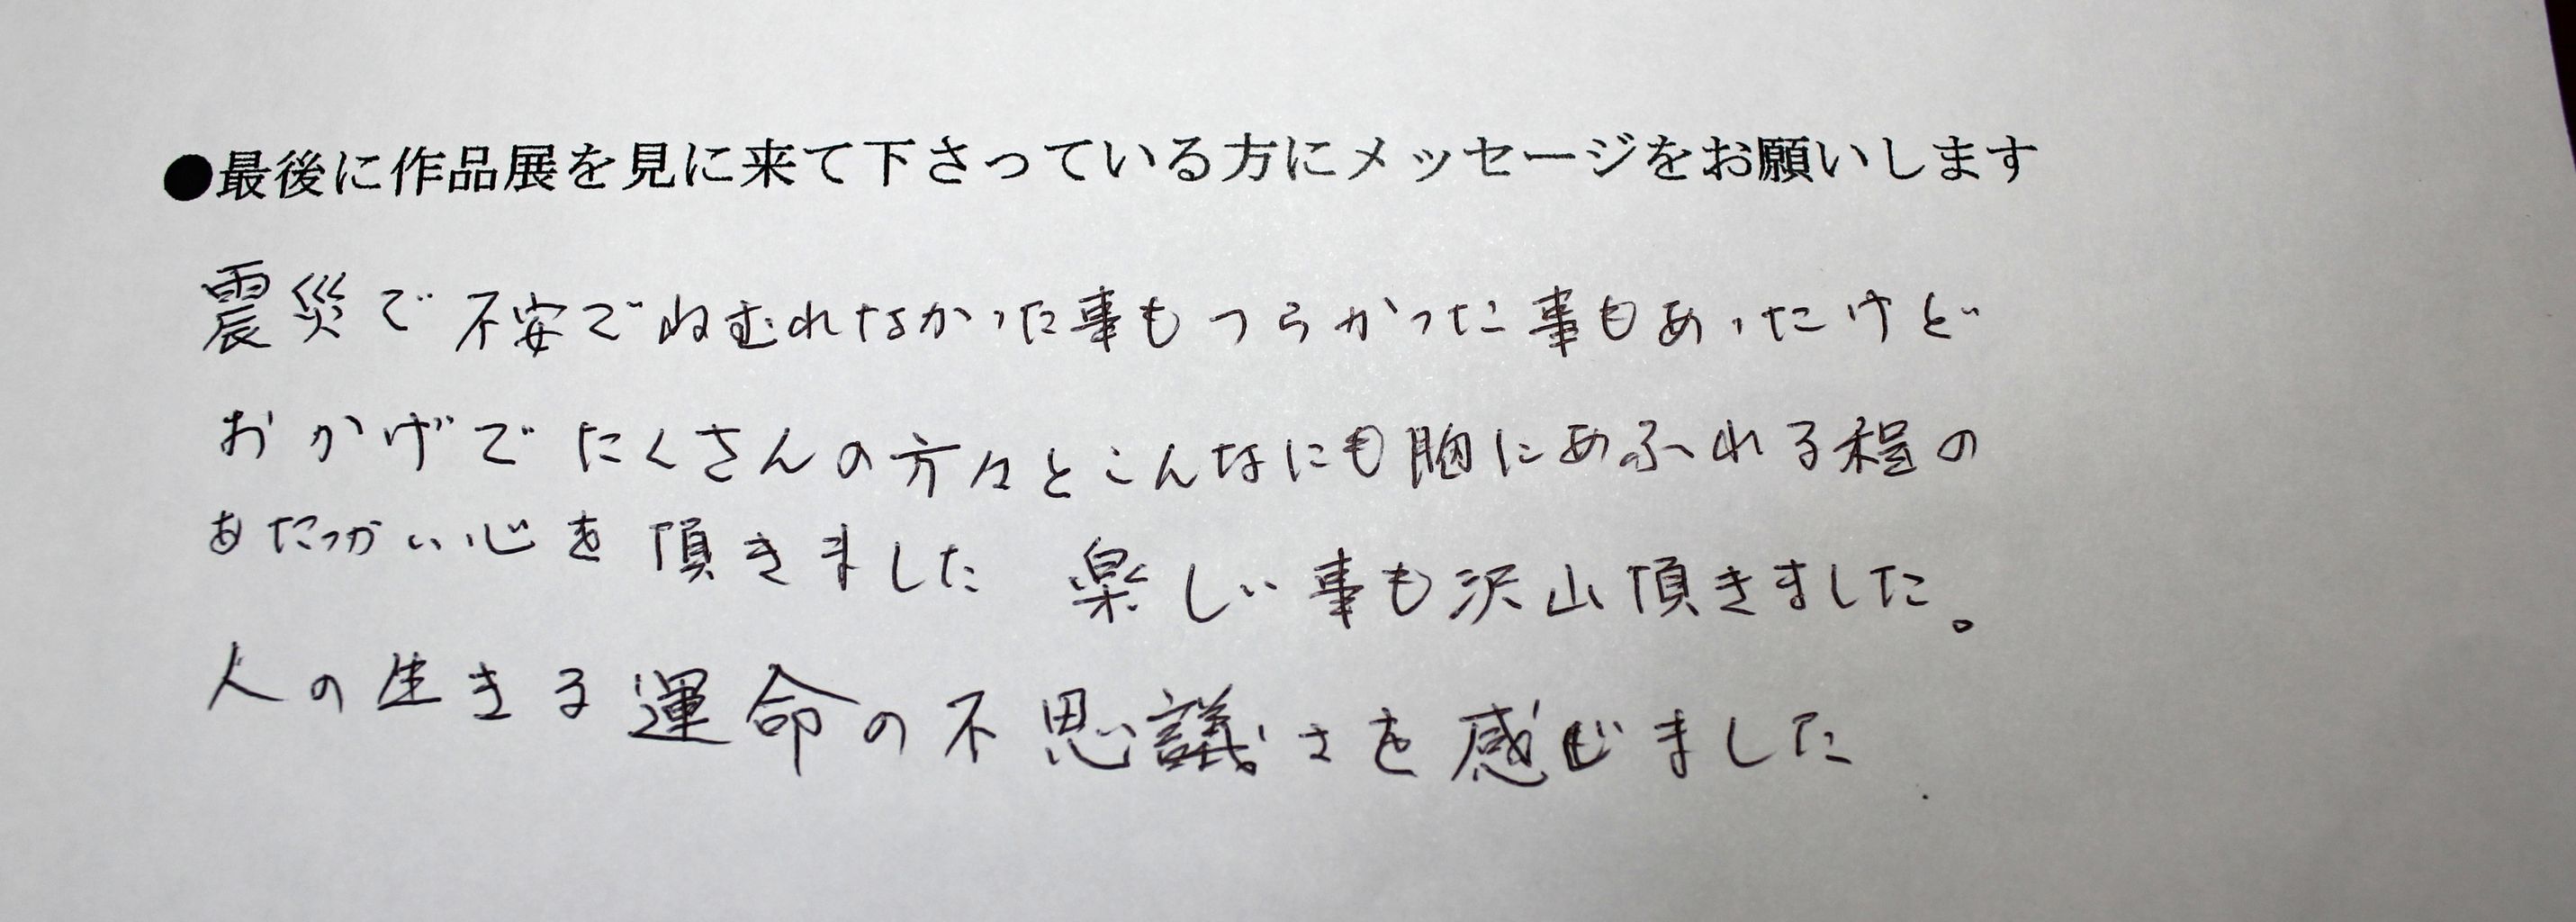 ●最後に作品展を見に来て下さっている方にメッセージをお願いします
震災で不安でねむれなかった事もつらかった事もあったけど
おかげでたくさんの方々とこんなにも胸にあふれる程の
あたっかい心を頂きました 楽しい事も沢山頂きました。
人の生きる運命の不思議さを感じました